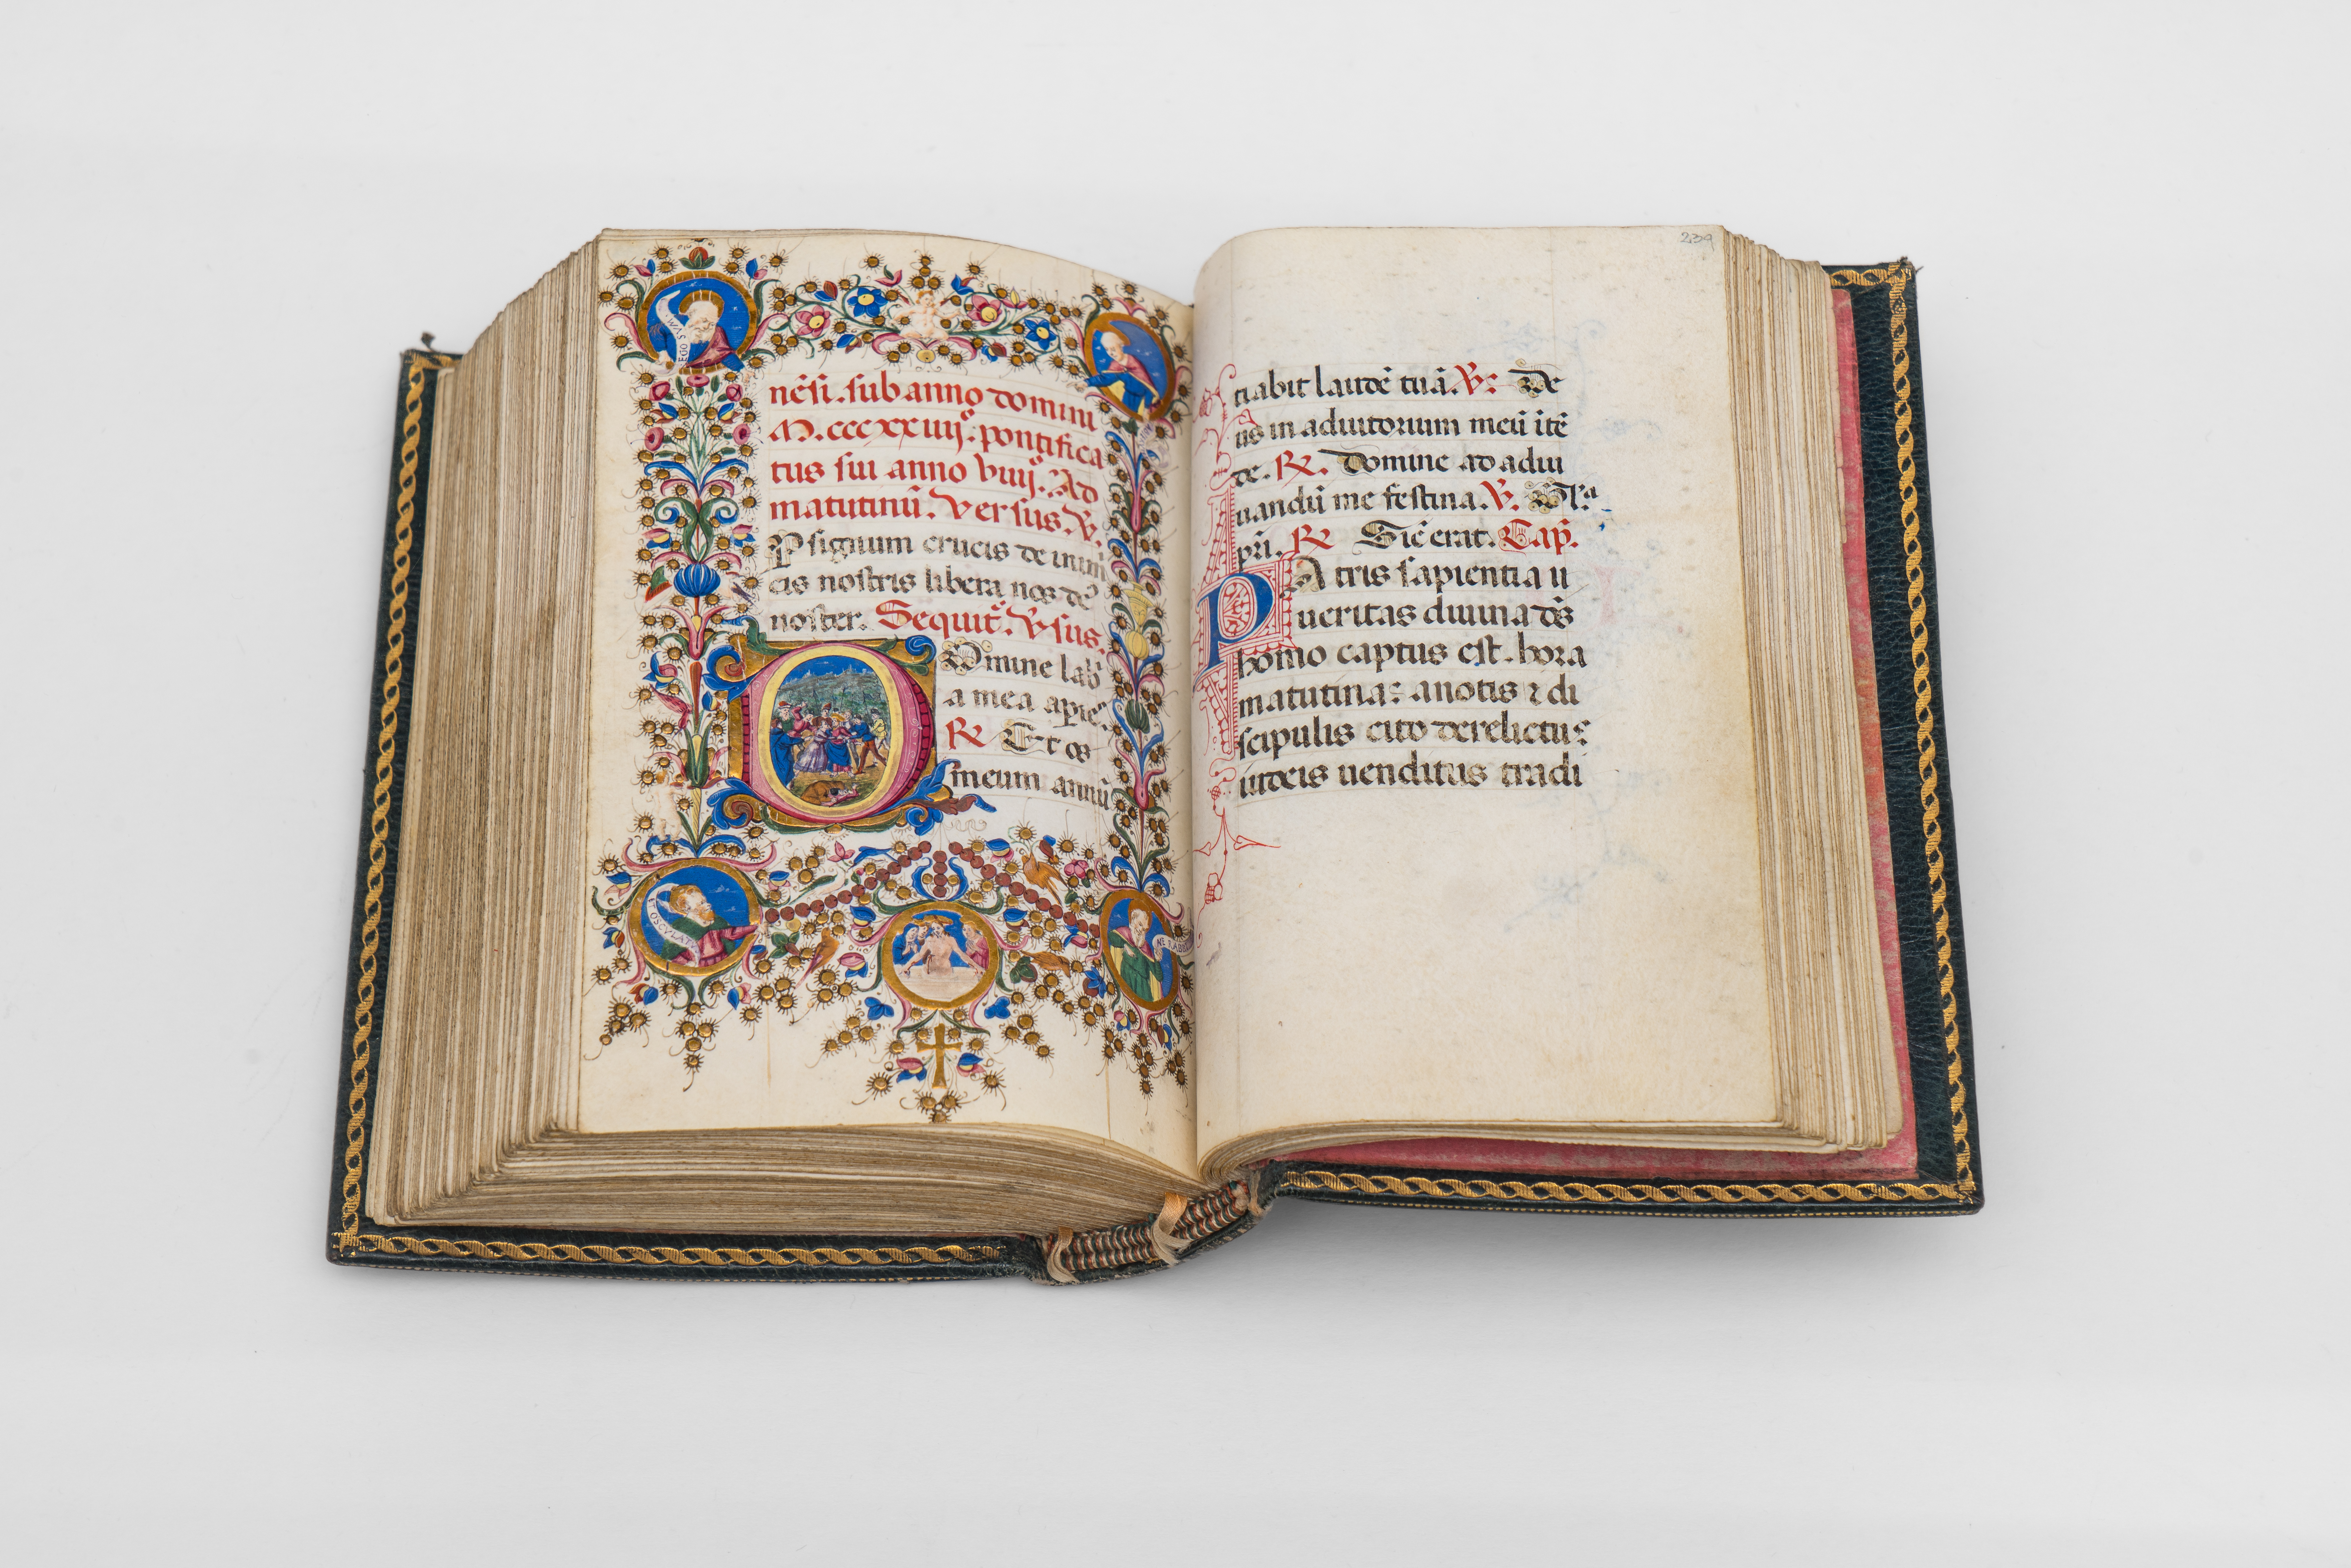 EGO SVM
nēsi. sub anno domini
M. cccxxiiijº. pontifica
tus sui anno viiijº. Ad
matutinū. Versus. V.
P signum crucis de inimi
cis nostris libera nos dē
noster. Sequit᷑. Vsus.
Domine lab
a mea apies
R Et os
meum annū
OSCVLA
239
tiabit laudē tuā. V: De
us in adiutorium meū ītē
de. R. Domine ad adiu
uandū me festina. V. Glᵃ
pri. R Sic̄ erat. Cap.
PAtris sapientia u
ueritas diuina dōs
homo captus est. hora
matutina: anotis ⁊ di
scipulis cito derelictus
iudeis uenditus tradi